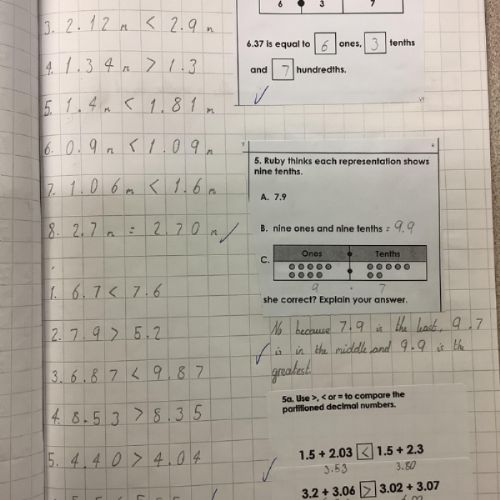 3. 2.12m < 2.9m
4. 1.34m > 1.3
5. 1.4m < 1.81m
6. 0.9m < 1.09m
7. 1.06m < 1.6m
8. 2.7m = 2.70m
1. 6.7 < 7.6
2. 7.9 > 5.2
3. 6.87 < 9.87
4. 8.53 > 8.35
5. 4.40 > 4.04
6 3 7
6.37 is equal to 6 ones, 3 tenths
and 7 hundredths.
5. Ruby thinks each representation shows
nine tenths.
A. 7.9
B. nine ones and nine tenths = 9.9
C.
Ones Tenths
9 . 7
she correct? Explain your answer.
No because 7.9 is the least, 9.7
is in the middle and 9.9 is the
greatest.
5a. Use >, < or = to compare the
partitioned decimal numbers.
1.5 + 2.03 < 1.5 + 2.3
3.53 3.80
3.2 + 3.06 > 3.02 + 3.07